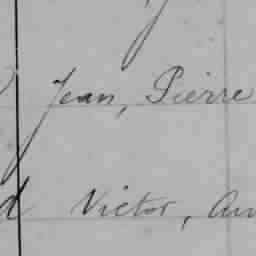 Jean, Pierre
d Victor,